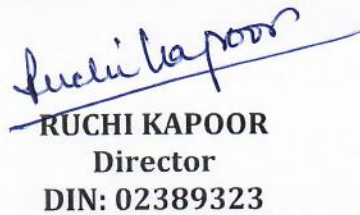 Ruchi Kapoor
RUCHI KAPOOR
Director
DIN: 02389323